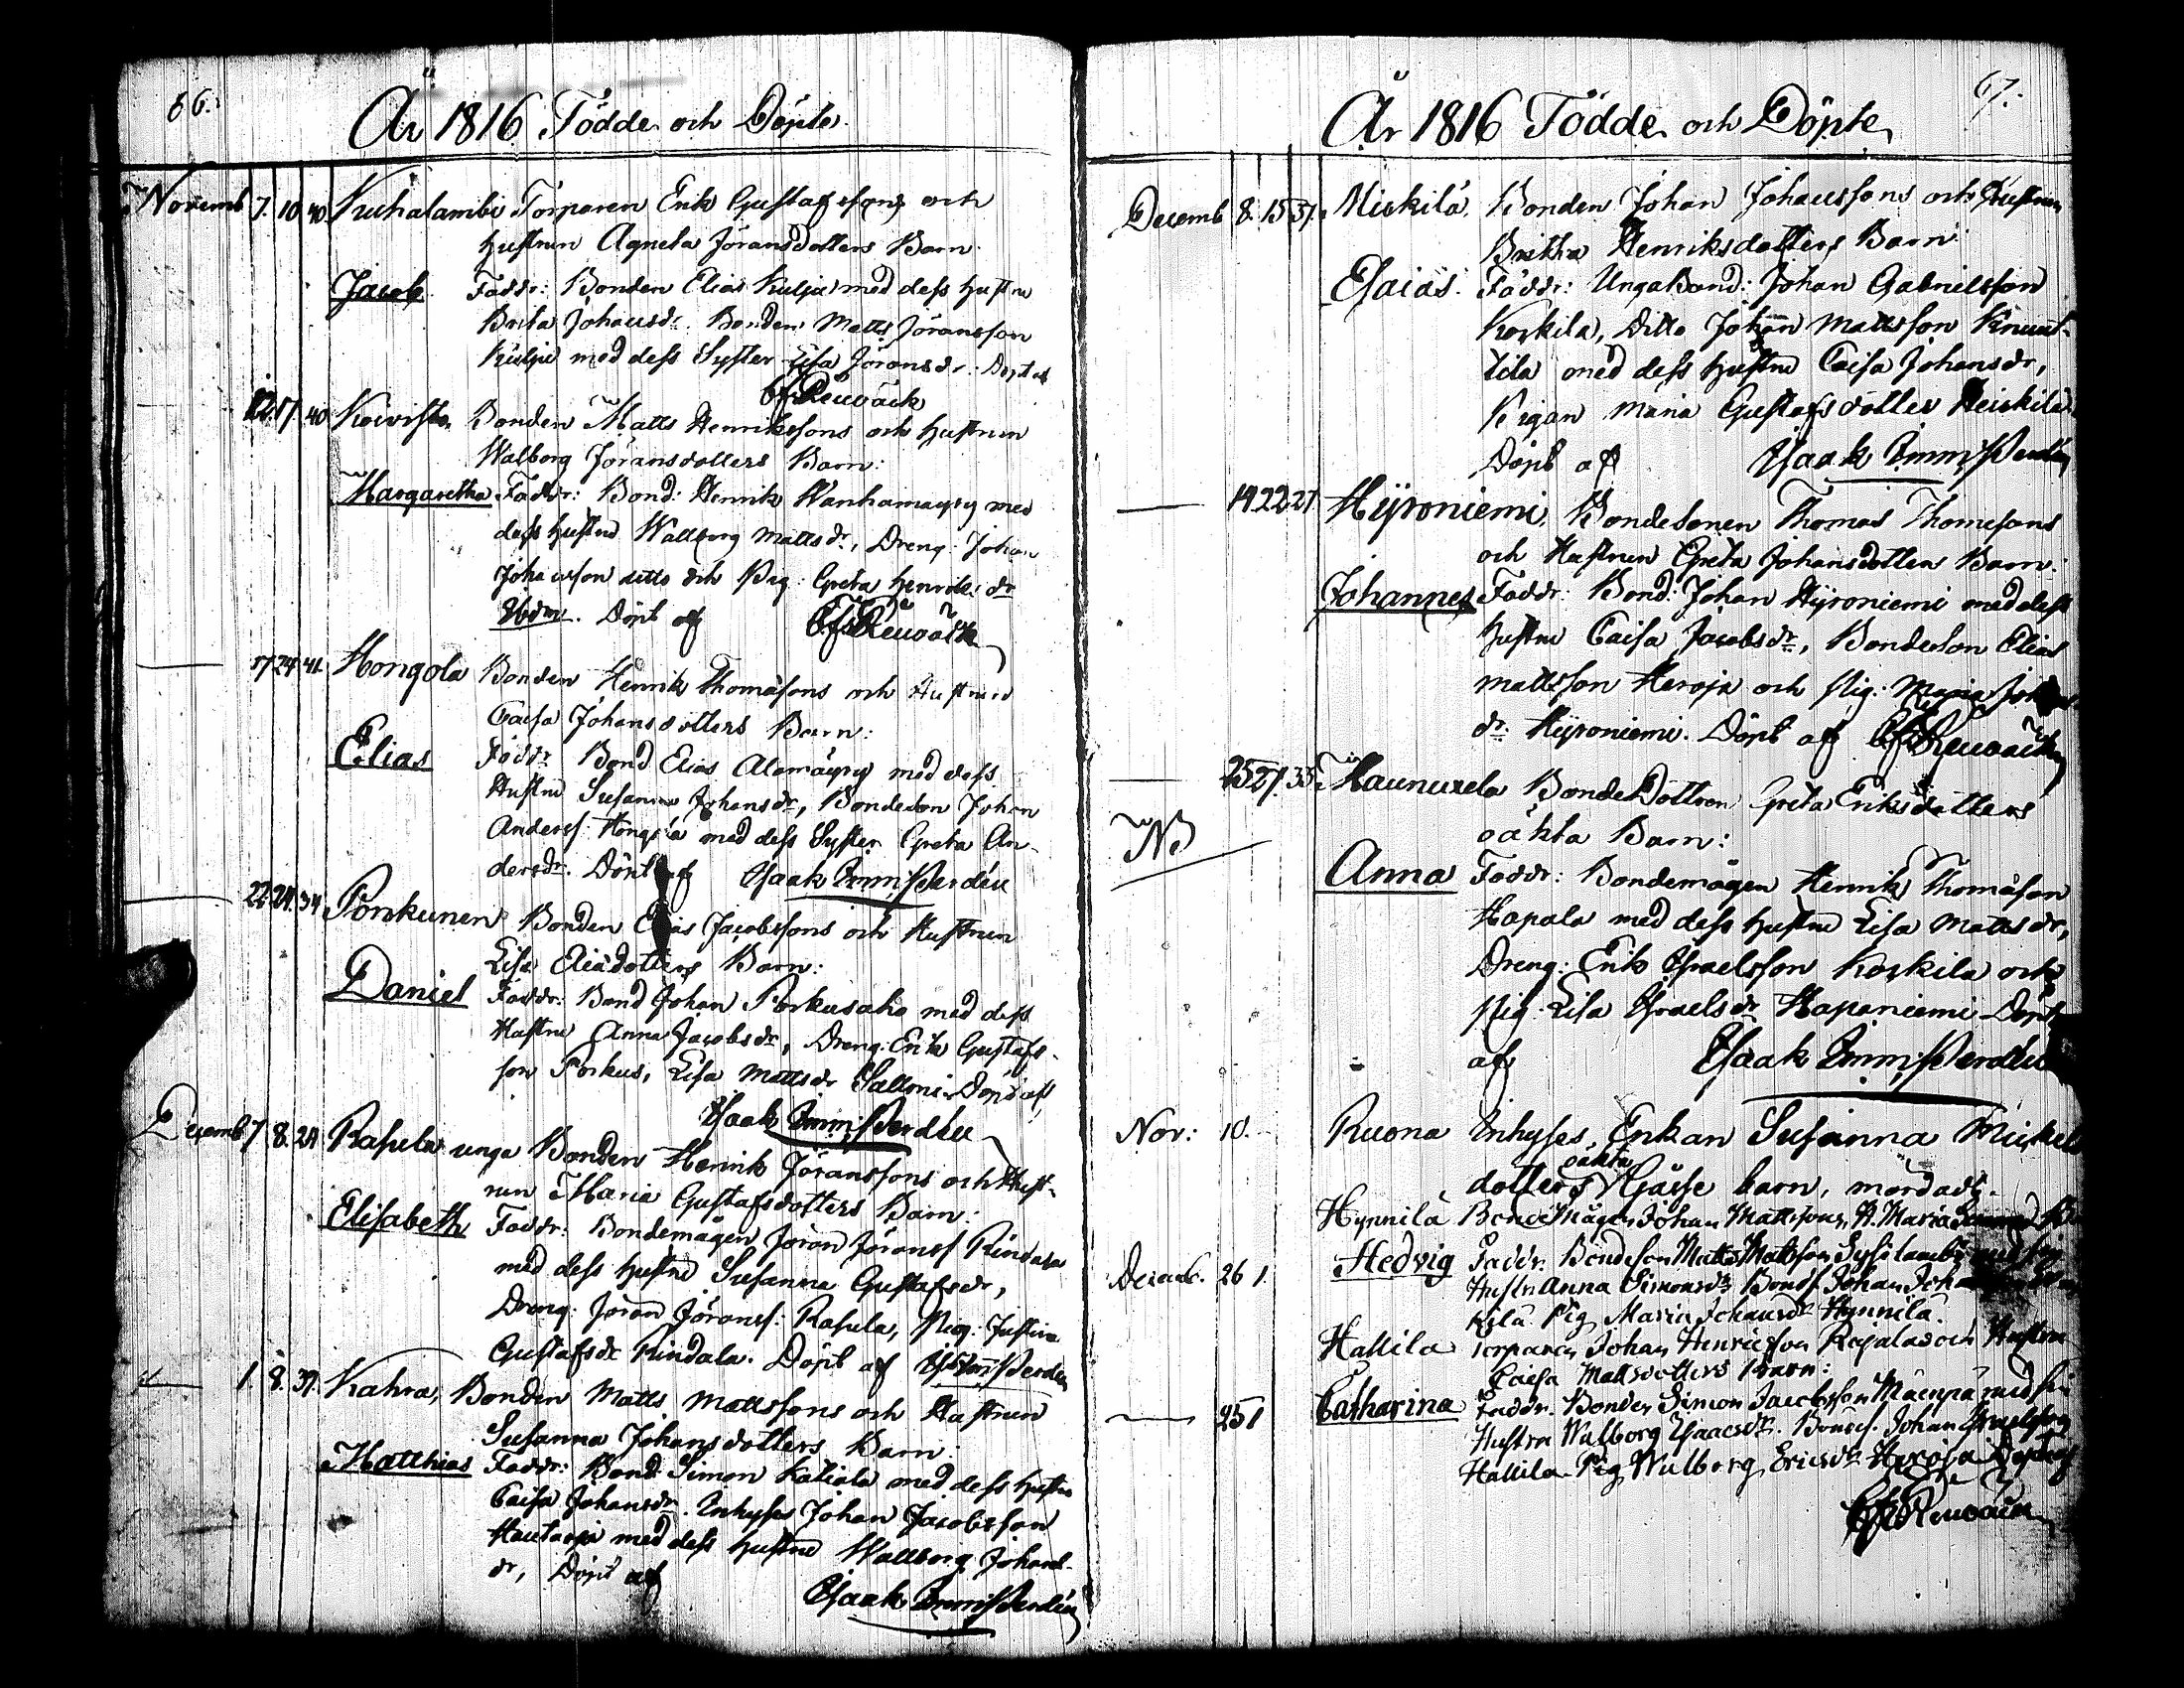 66.
År 1816 Födde och Döpte
Novemb 7. 10 40 Kuhalambi Torparen Erik Gustafssons och
hustrun Agneta Jöransdotters Barn
Jacob Faddr: Bonden Elias Kulju med dess hustru
Brita Johansdr. Bonden Matts Jöransson
Kulju med dess Syster Lisa Jöransdr. Döpt af
12. 17. 40 Koivisto Bonden Matts Henrikssons och hustrun
Walborg Jöransdotters Barn:
Margaretha Faddr: Bond: Henrik Wanhamäyry med
dess hustru Wallborg Mattsdr, Dreng: Johan
Johansson ditto och Pig: Greta Henriks dr
Döpt af
17 24 41 Hongola Bonden Henrik Thomæsons och Hustrun
Caisa Johansdotters Barn:
Elias Faddr Bond Elias Alamäyry med dess
Hustru Susanna Johansdr, Bondeson Johan
Anderss: Hongola med dess Syster Greta An-
dersdr. Döpt af Isaak Imm: Perdén
22 24 34 Porkunen Bonden Elias Jacobssons och Hustrun
Lisa Eliædotters Barn:
Daniel Faddr: Bond Johan Porkusaho med dess
Hustru Anna Jacobsdr, Dreng: Erik Gustafs-
son Porkus, Lisa Mattsdr Salloni. Döpt af
Isaak Imm: Perdén
Decemb 7 8. 24 Rasula unga Bonden Henrik Jöranssons och Hust-
run Maria Gustafsdotters Barn:
Elisabeth Faddr: Bondemågen Jöran Jöranss Rindala
med dess hustru Susanna Gustafsdr,
Dreng: Jöran Jöranss: Rasula, Pig: Justina
Gustafsdr Rindala. Döpt af Is: Imm: Perdén
1. 8. 37. Kahra, Bonden Matts Mattssons och Hustrun
Susanna Johansdotters Barn:
Matthias Faddr: Bond: Simon Katiala med dess hustru
Caisa Johansdr. Inhyses Johan Jacobsson
Hautaoja med dess hustru Wallborg Johans-
dr, Döpt af
Isaak Imm: Perdén
67.
År 1816 Födde och Döpte
Decemb 8. 15 37. Miekilä, Bonden Johan Johanssons och Hustrun
Britha Henriksdotters Barn:
Esaias. Faddr: Unga Bond: Johan Gabrielsson
Koskila, Ditto Johan Mattsson Knuut-
tila med dess hustru Caisa Johansdr,
Pigan Maria Gustafsdotter Heickilä
Döpt af Isaak Imm: Perdén
19 22 27 Hyroniemi, Bondesonen Thomas Thomæsons
och Hustrun Greta Johansdotters Barn:
Johannes Faddr: Bond: Johan Hyroniemi med dess
hustru Caisa Jacobsdr, Bondeson Elias
Mattsson Heroja och Pig: Maria Johans
dr. Hyroniemi. Döpt af
25 27. 33 Haunuxela Bonde Dottren Greta Eriksdotters
oäkta Barn:
NB
Anna Faddr: Bondemågen Henrik Thomæson
Hapala med dess hustru Lisa Mattsdr,
Dreng: Erik Israelsson Koskila och
Pig: Lisa Israelsdr Haponiemi Döpt
af Isaak Imm: Perdén
Nov: 10. Ruona Inhyses, Enkan Susanna Mickels
dotters oäkta Gåsse barn, mördadt.
Hynnilä Bondemågen Johan Mattssons, H. Maria
Decemb. 26 1. Hedvig Faddr. Bondeson Matts Mattsson
Hustr Anna Simonsdr Bonds. Johan
kilä Pig Maria Johansdr Hynnilä.
Hallila Torparen Johan Henricsson och Hustru
Caisa Mattsdotters Barn:
25 1 Catharina Faddr. Bonden Simon Jacobsson Mäenpä med sin
Hustru Walborg Isaacsdr. Bondes. Johan Israelsson
Hallila. Pig Walborg Ericsdr Heroja Döpt af